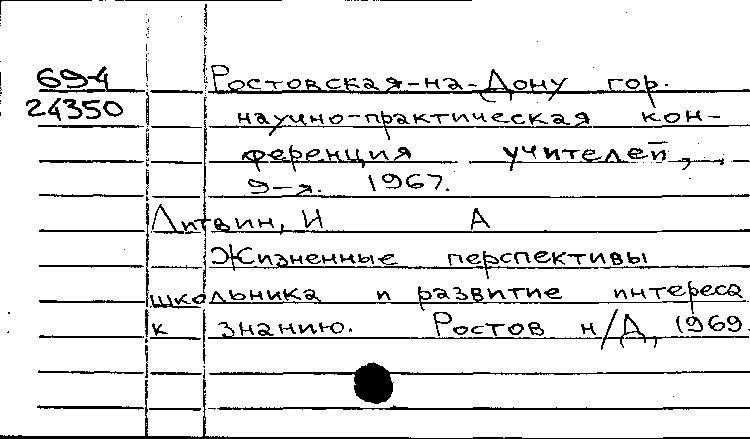 69-4 Ростовская-на-Дону гор.
24350 научно-практическая кон-
ференция учителей,
9-я. 1967.
Литвин, И А
Жизненные перспективы
школьника и развитие интереса
к знанию. Ростов н/Д, 1969.